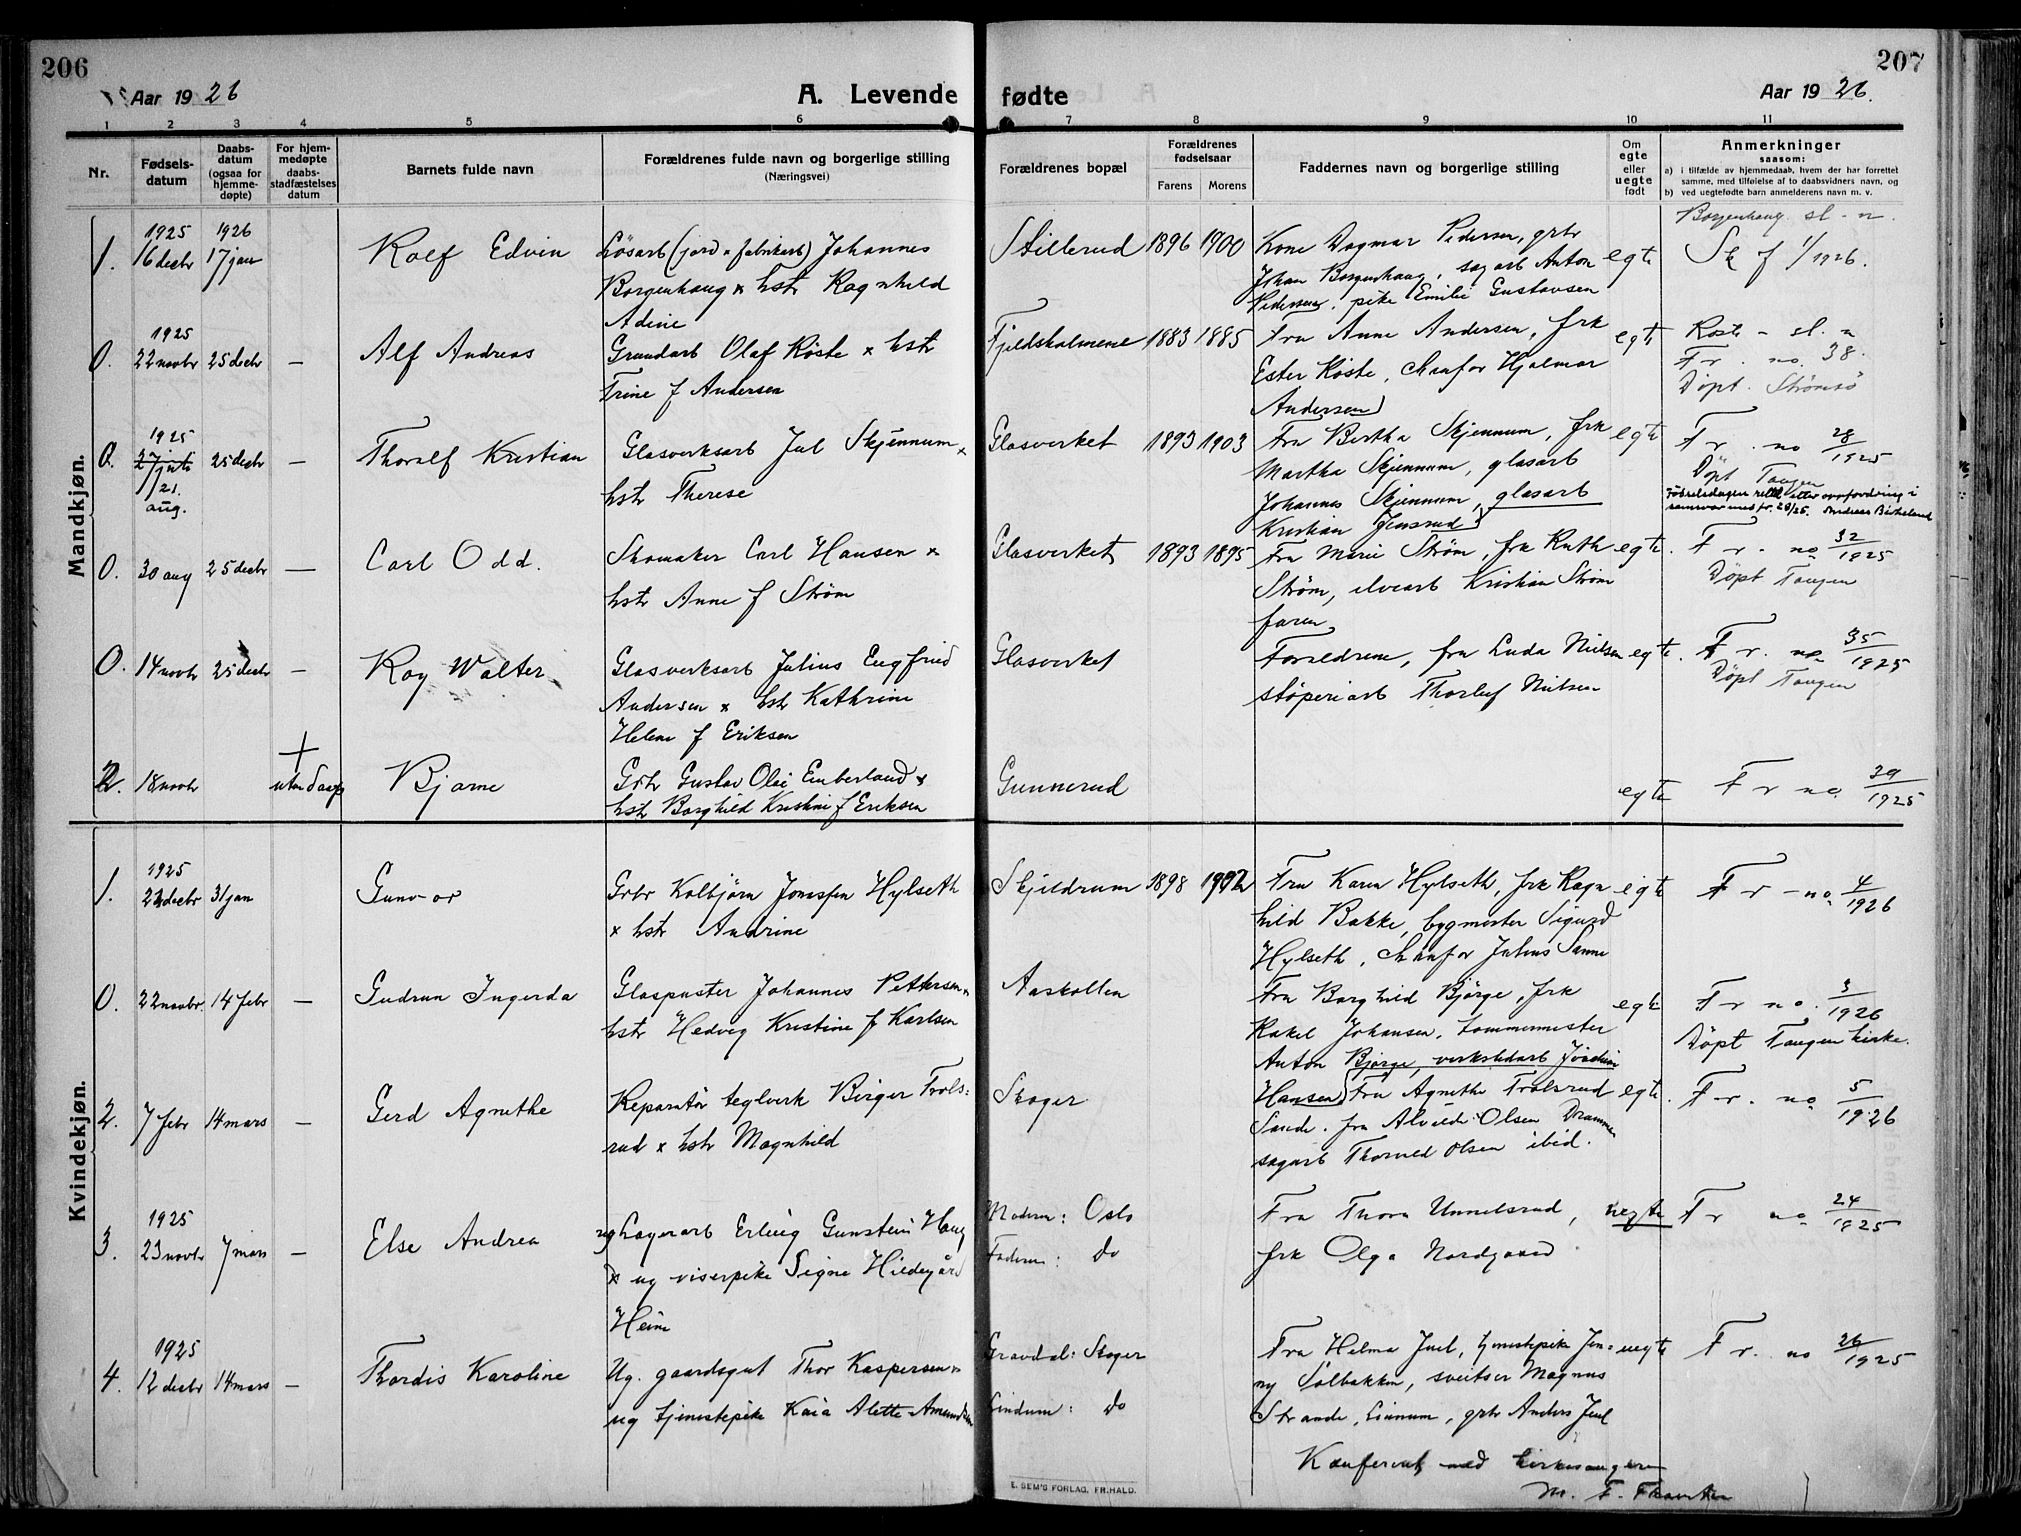 206
207
Aar 1926
A. Levende fødte
Aar 1926.
1 2 3 4 5 6 7 8 9 10 11
Nr.
Fødsels-
datum
Daabs-
datum
(ogsaa for
hjemme-
døpte)
For hjem-
medøpte
daabs-
stadfæstelses
datum
Barnets fulde navn
Forældrenes fulde navn og borgerlige stilling
(Næringsvei)
Forældrenes bopæl
Forældrenes
fødselsaar
Farens Morens
Faddernes navn og borgerlige stilling
Om
egte
eller
uegte
født
Anmerkninger
saasom:
a) i tilfælde av hjemmedaab, hvem der har forrettet
samme, med tilføielse af to daabsvidners navn, og
b) ved uegtefødte barn anmelderens navn m. v.
Mandkjøn.
1925 1926 Borgenhaug sl - n.
1. 16 decbr 17 jan Rolf Edvin Løsarb (jord & fabrikarb) Johannes Stillerud 1896 1900 Kone Dagmar Pedersen, grbr egte Sk f 1/1926.
Borgenhaug x hstr Ragnhild Johan Borgenhaug, sagarb Anton
Adine Pedersen, pike Emilie Gustavsen
1925
0. 22 novbr 25 decbr — Alf Andreas Grundarb Olaf Röste x hstr Fjeldskolmene 1883 1885 Fru Anne Andersen, frk egte Röste - sl. n
Trine f Andersen Ester Röste, Chaufør Hjalmar Fr. no. 38.
Andersen Döpt. Strömsö
1925
0. 27 juli 25 decbr — Thoralf Kristian Glasverksarb Jul Skjennum x Glasverket 1893 1903 Fru Bertha Skjennum, frk egte Fr. no 28/1925
/21. aug. hstr Therese Martha Skjennum, glasarb Döpt Tangen
Johannes Skjennum, glasarb Fødselsdagen rettet etter anfordring i
Kristian Jensrud samsvar med fr. 28/25. Andreas Birkeland
0. 30 aug 25 decbr — Carl Odd. Skomaker Carl Hansen x Glasverket 1893 1895 Fru Marie Strøm, frk Ruth egte. Fr. no 32/1925
hstr Anne f Strøm Strøm, elvearb Kristian Strøm Döpt Tangen
faren
0. 14 novbr 25 decbr — Roy Walter Glasverksarb Julius Engfried Glasverket Foreldrene, fru Luda Nielsen egte. Fr. no 35/1925
Andersen x hstr Kathrine støperiarb Thorleif Nielsen Döpt Tangen
Helene f Eriksen
+
2. 18 novbr uten daap Bjarne Grbr Gustav Olai Emberland x Gunnerud egte Fr no. 39/1925
hstr Borghild Kristine f Eriksen
Kvindekjøn.
1925
1. 22 decbr 31 jan Gunvor Grbr Kolbjörn Jonassen Hylseth Skjeldrum 1898 1902 Fru Karen Hylseth, frk Ragn egte Fr - no. 4/1926
x hstr Andrine hild Bakke, bygmester Sigurd
Hylseth, Chaufør Julius Sanne
0. 22 novbr. 14 febr — Gudrun Ingerda Glaspuster Johannes Pettersen x Aaskollen Fru Borghild Bjørge, frk egte Fr no. 3/1926
hstr Hedvig Kristine f Karlsen Rakel Johansen, tømmermester Döpt Tangen kirke.
Anton Bjørge, verkstedarb Joachim
2. 7 febr 14 mars — Gerd Agnethe Reparatør teglverk Birger Trols= Skoger Hansen Fru Agnethe Trolsrud egte. Fr. no 5/1926
rud x hstr Magnhild Sande. fru Alvilde Olsen Drammen
sagarb Thorvald Olsen ibid.
1925
3. 23 novbr 7 mars — Else Andrea ug Lagerarb Erling Gunstein Haug Moderen: Oslo Fru Thora Unnelsrud, uegte Fr no 24/1925
x ug viserpike Signe Hildegård Faderen: do frk Olga Nordgaard
Heim
1925
4. 12 decbr 14 mars — Thordis Karoline Ug. gaardsgut Thor Kaspersen x Gravdal: Skoger Fru Helma Juel, tjenestepike Jen= uegte Fr. no 26/1925
ug tjenestepike Kaia Alette Amundsen Lindum: do ny Solbakken, sveitser Magnus
Strande, Linnum, grbr Anders Juel
Konferert med kirkesangeren
M. F.
E. SEM'S FORLAG, FR.HALD.